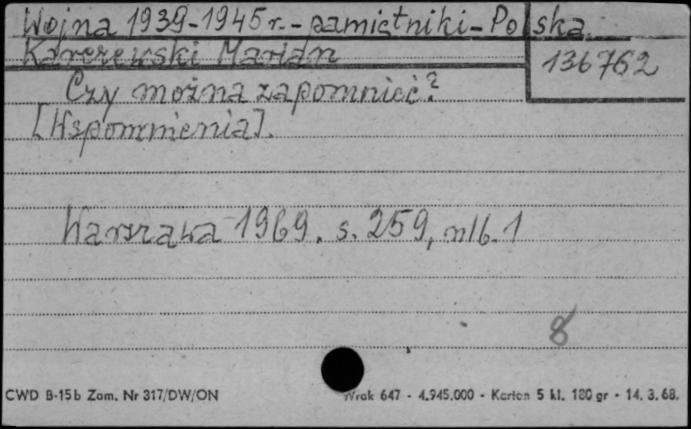 Wojna 1939-1945 r. - pamiętniki - Polska
Karczewski Marian
136762
Czy można zapomnieć?
[Wspomnienia].
Warszawa 1969. s. 259, nlb. 1
8
CWD B-15b Zam. Nr 317/DW/ON
647 - 4.945.000 - Karton 5 kl. 180 gr - 14. 3. 68.